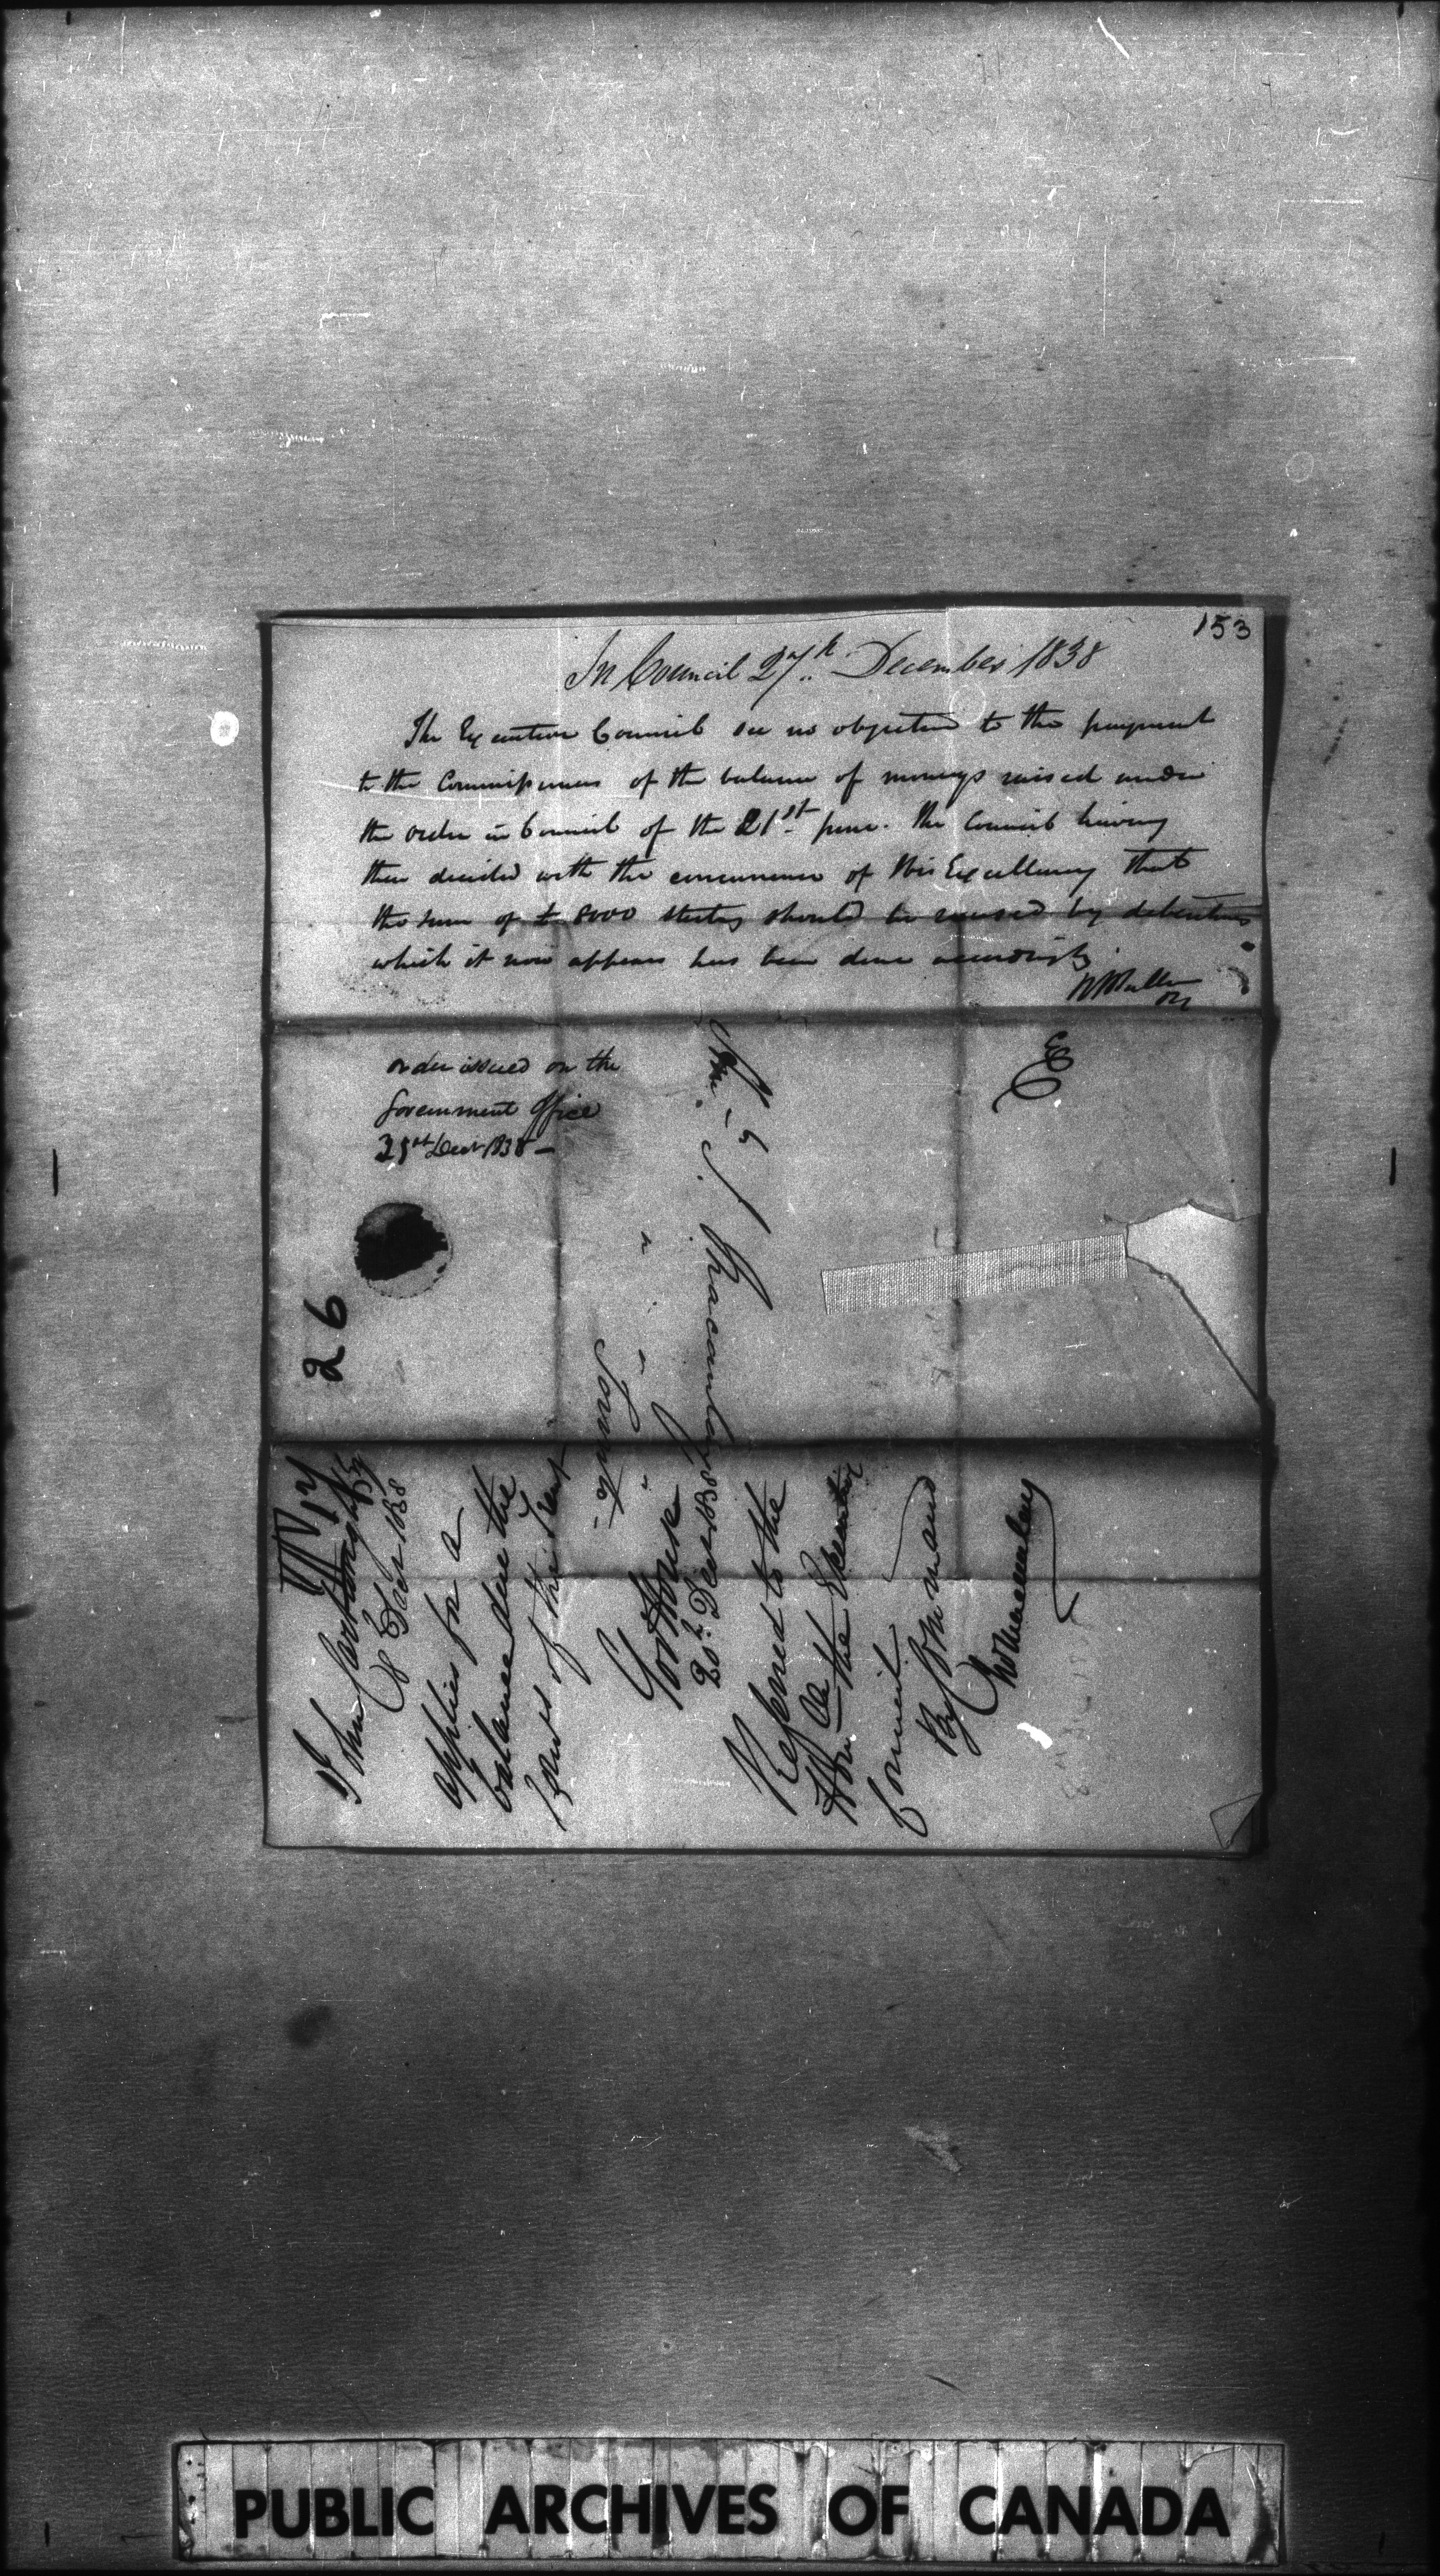 153
In Council 27th December 1838
The Executive Council see no objection to the payment
to the Commissioners of the balance of moneys raised under
the order in Council of the 21st June. The Council having
then decided with the concurrence of His Excellency that
the sum of £8000 sterling should be raised by debentures
which it now appears has been done accordingly
order issued on the
Government Office
31st Decr 1838 —
EC
26
John Cartwright Esq
8 Decr 1838
applies for a
balance due the
of the Trent
Govt House
20th Decr 1838
Referred to the
Honble the Executive
Council
By Command
Jno Macaulay
Hon.
J. Macaulay
PUBLIC ARCHIVES OF CANADA